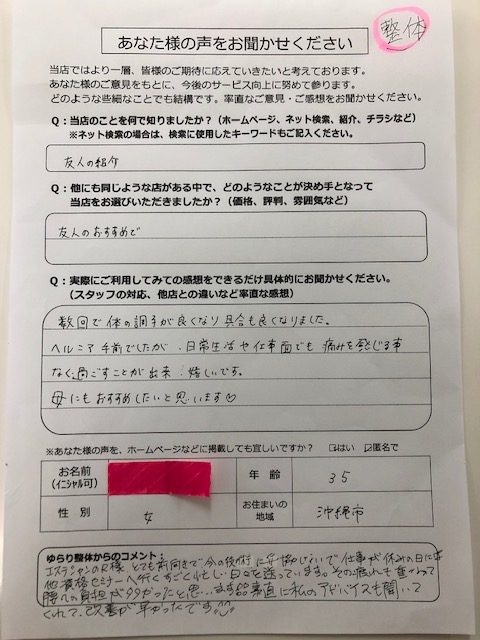 整体
あなた様の声をお聞かせください
当店ではより一層、皆様のご期待に応えていきたいと考えております。
あなた様のご意見をもとに、今後のサービス向上に努めて参ります。
どのような些細なことでも結構です。率直なご意見・ご感想をお聞かせください。
Q:当店のことを何で知りましたか?(ホームページ、ネット検索、紹介、チラシなど)
※ネット検索の場合は、検索に使用したキーワードもご記入ください。
友人の紹介
Q:他にも同じような店がある中で、どのようなことが決め手となって
当店をお選びいただきましたか?(価格、評判、雰囲気など)
友人のおすすめで
Q:実際にご利用してみての感想をできるだけ具体的にお聞かせください。
(スタッフの対応、他店との違いなど率直な感想)
数回で体の調子が良くなり具合も良くなりました。
ヘルニア手前でしたが、日常生活や仕事面でも痛みを感じる事
なく過ごすことが出来、嬉しいです。
母にもおすすめしたいと思います♡
※あなた様の声を、ホームページなどに掲載しても宜しいですか? □はい ☑匿名で
お名前
(イニシャル可)
年 齢
35
性 別
女
お住まいの
地域
沖縄市
ゆらり整体からのコメント:
エステシャンのR様、とても前向きで今の技術に妥協しないで仕事が休みの日には
他資格セミナーへ行くすごく忙しい日々を送っています。その疲れも重なって
腰への負担が多かったと思います。素直に私のアドバイスも聞いて
くれて、改善が早かったです